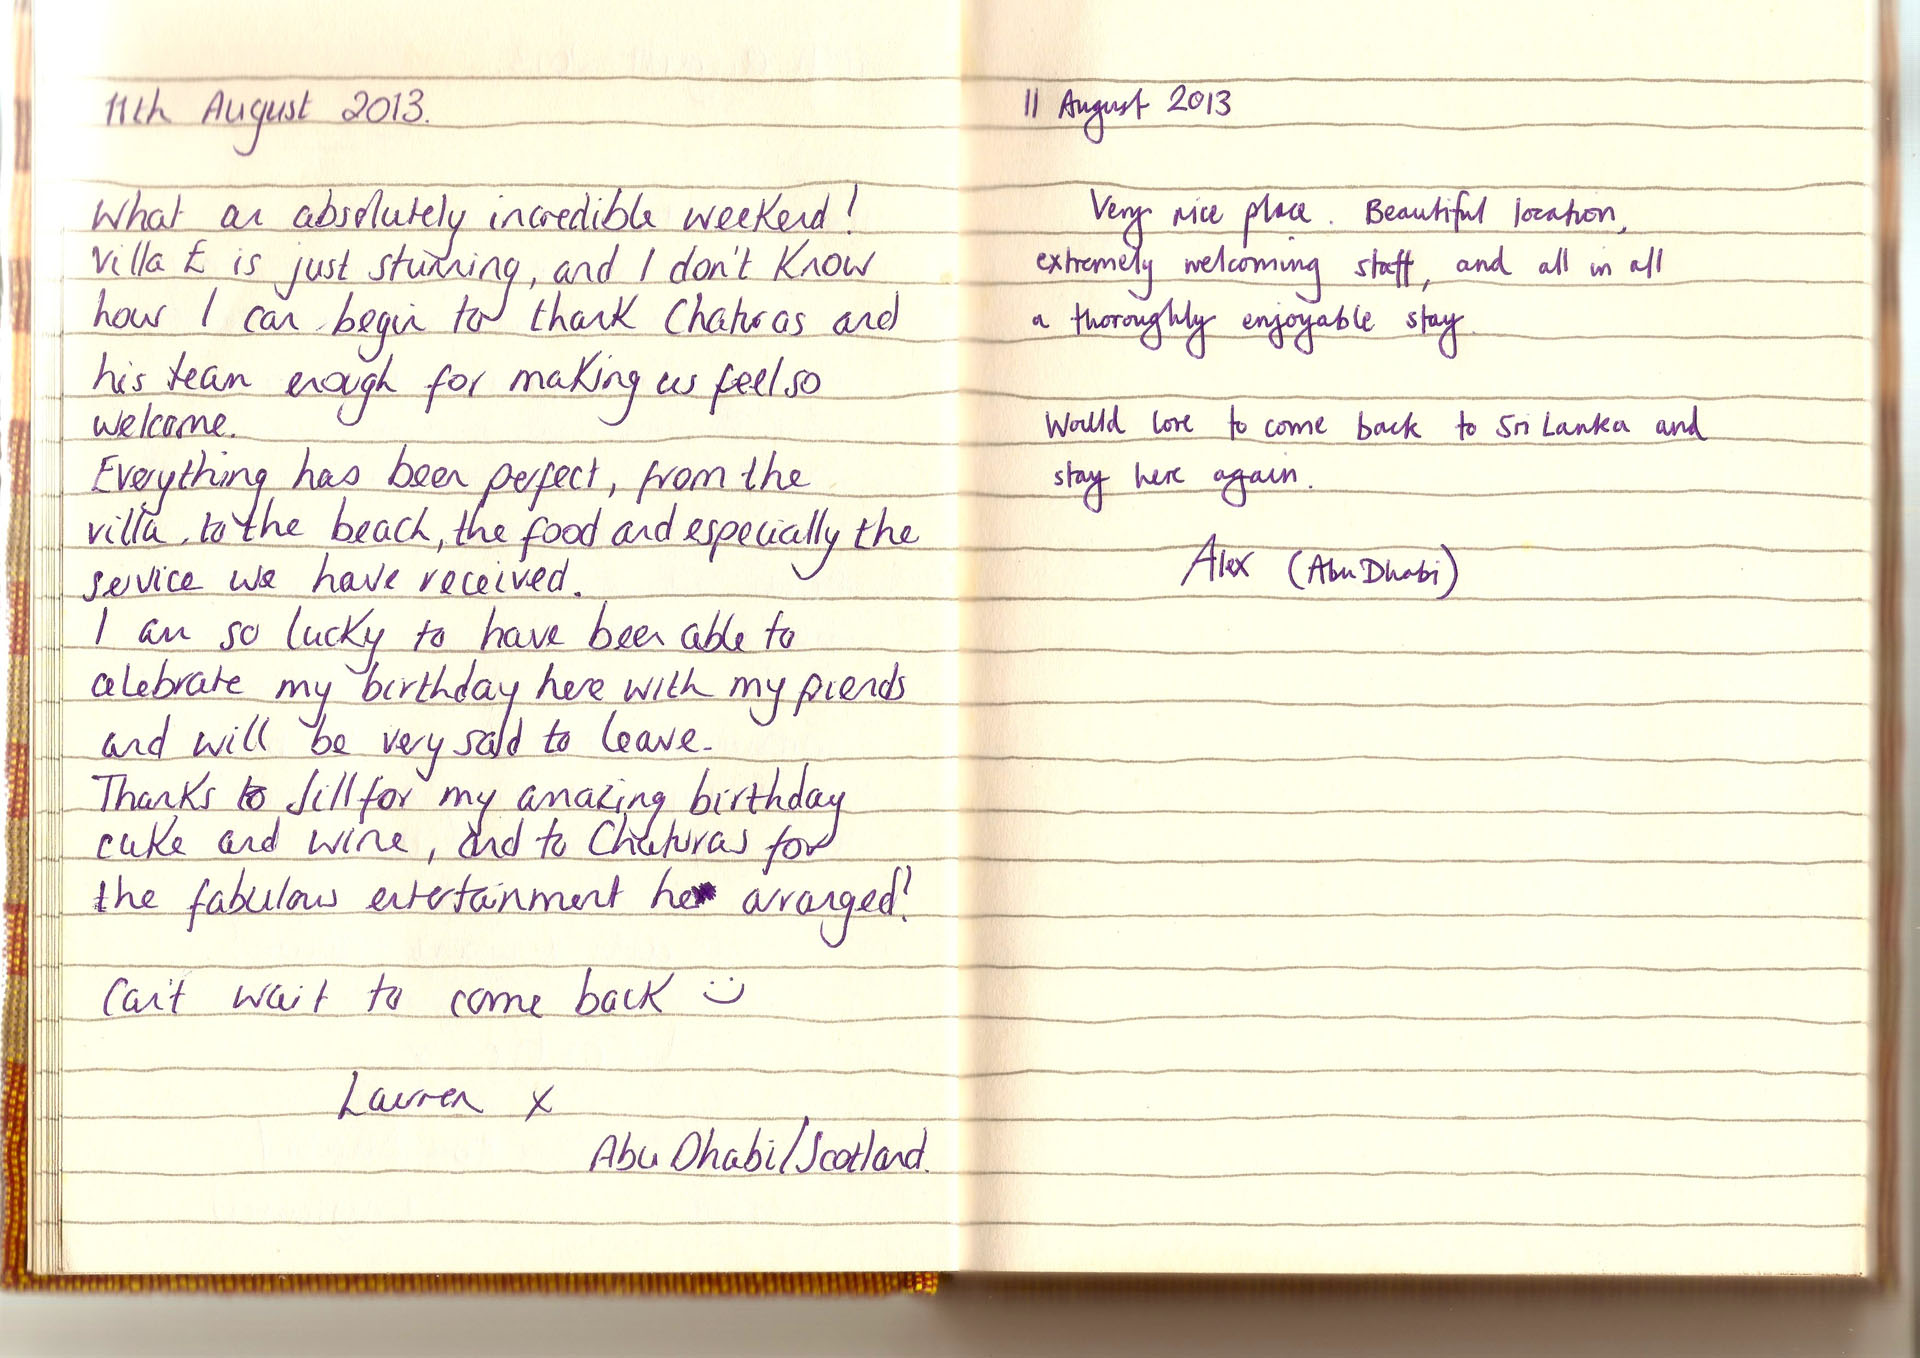 11th August 2013.
What an absolutely incredible weekend!
Villa E is just stunning, and I don't know
how I can begin to thank Chaturas and
his team enough for making us feel so
welcome.
Everything has been perfect, from the
villa, to the beach, the food and especially the
service we have received.
I am so lucky to have been able to
celebrate my birthday here with my friends
and will be very sad to leave.
Thanks to Jill for my amazing birthday
cake and wine, and to Chaturas for
the fabulous entertainment he arranged!
Can't wait to come back :)
Lauren x
Abu Dhabi/Scotland.
11 August 2013
Very nice place. Beautiful location,
extremely welcoming staff, and all in all
a thoroughly enjoyable stay.
Would love to come back to Sri Lanka and
stay here again.
Alex (Abu Dhabi)